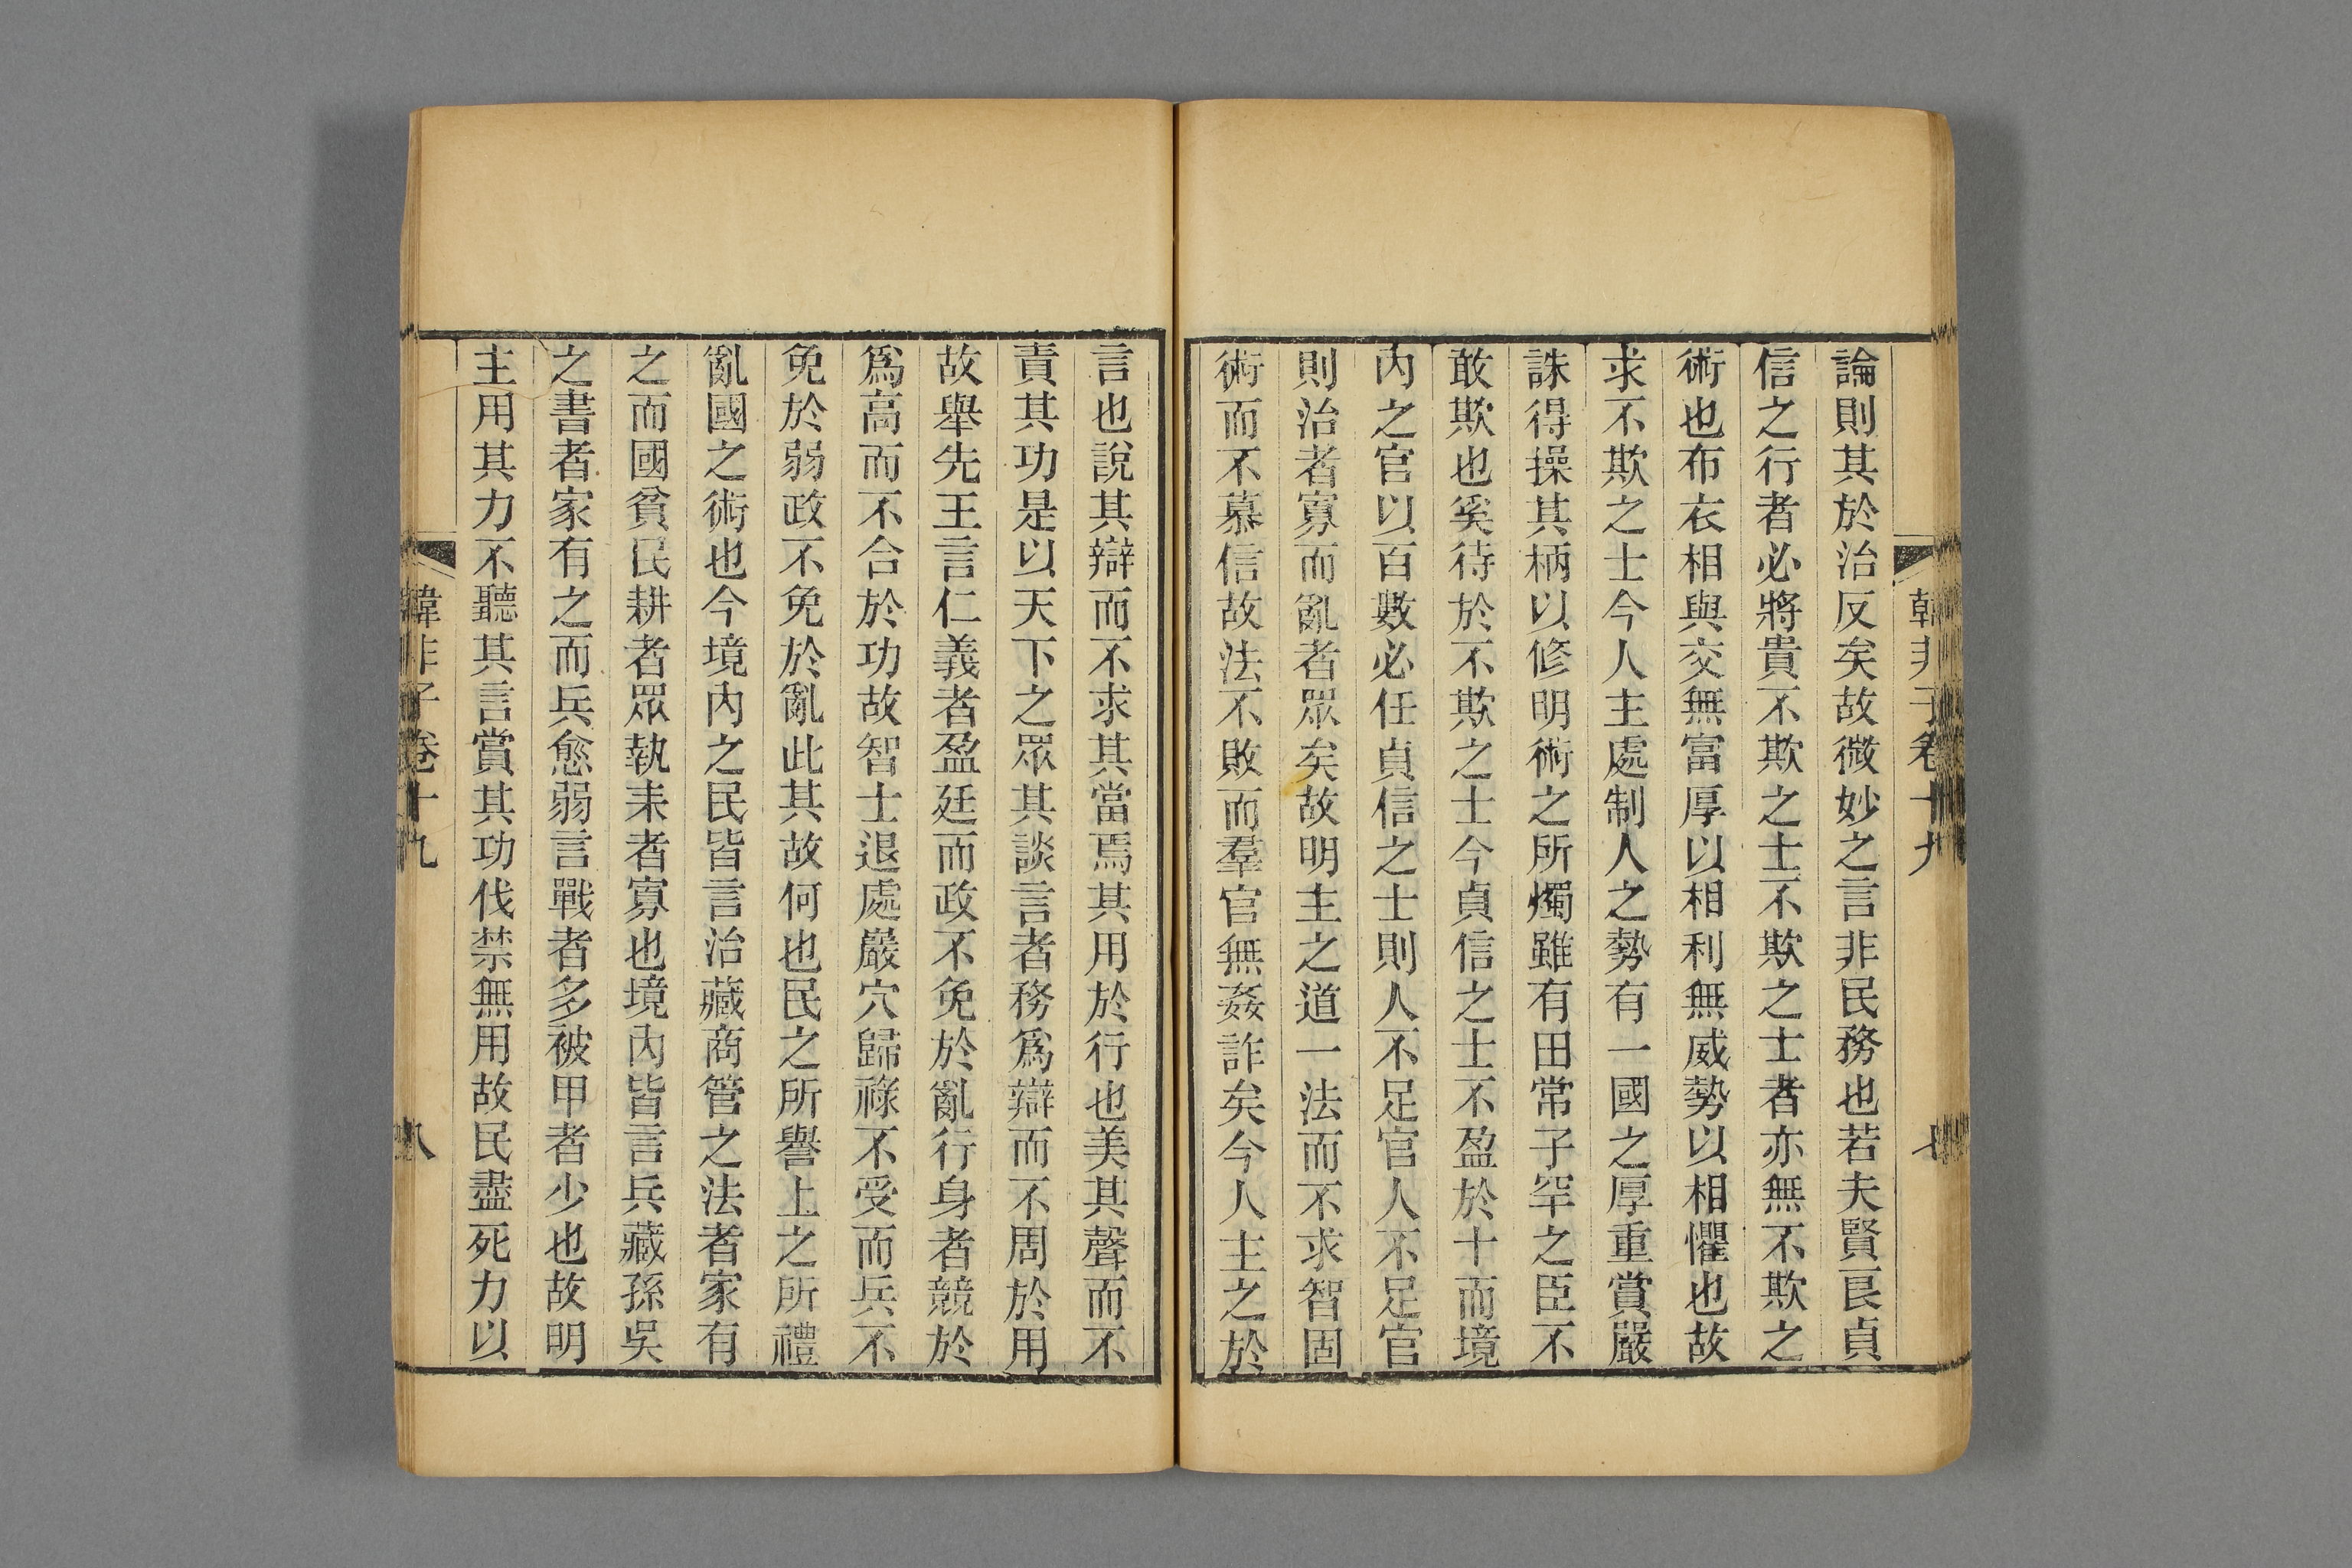 韓非子卷十九
七
論則其於治反矣故微妙之言非民務也若夫賢良貞
信之行者必將貴不欺之士不欺之士者亦無不欺之
術也布衣相與交無富厚以相利無威勢以相懼也故
求不欺之士今人主處制人之勢有一國之厚重賞嚴
誅得操其柄以修明術之所燭雖有田常子罕之臣不
敢欺也奚待於不欺之士今貞信之士不盈於十而境
內之官以百數必任貞信之士則人不足官人不足官
則治者寡而亂者眾矣故明主之道一法而不求智固
術而不慕信故法不敗而羣官無姦詐矣今人主之於
言也說其辯而不求其當焉其用於行也美其聲而不
責其功是以天下之眾其談言者務爲辯而不周於用
故舉先王言仁義者盈廷而政不免於亂行身者競於
爲高而不合於功故智士退處巖穴歸祿不受而兵不
免於弱政不免於亂此其故何也民之所譽上之所禮
亂國之術也今境內之民皆言治藏商管之法者家有
之而國貧民耕者眾執耒者寡也境內皆言兵藏孫吳
之書者家有之而兵愈弱言戰者多被甲者少也故明
主用其力不聽其言賞其功伐禁無用故民盡死力以
韓非子卷十九
八